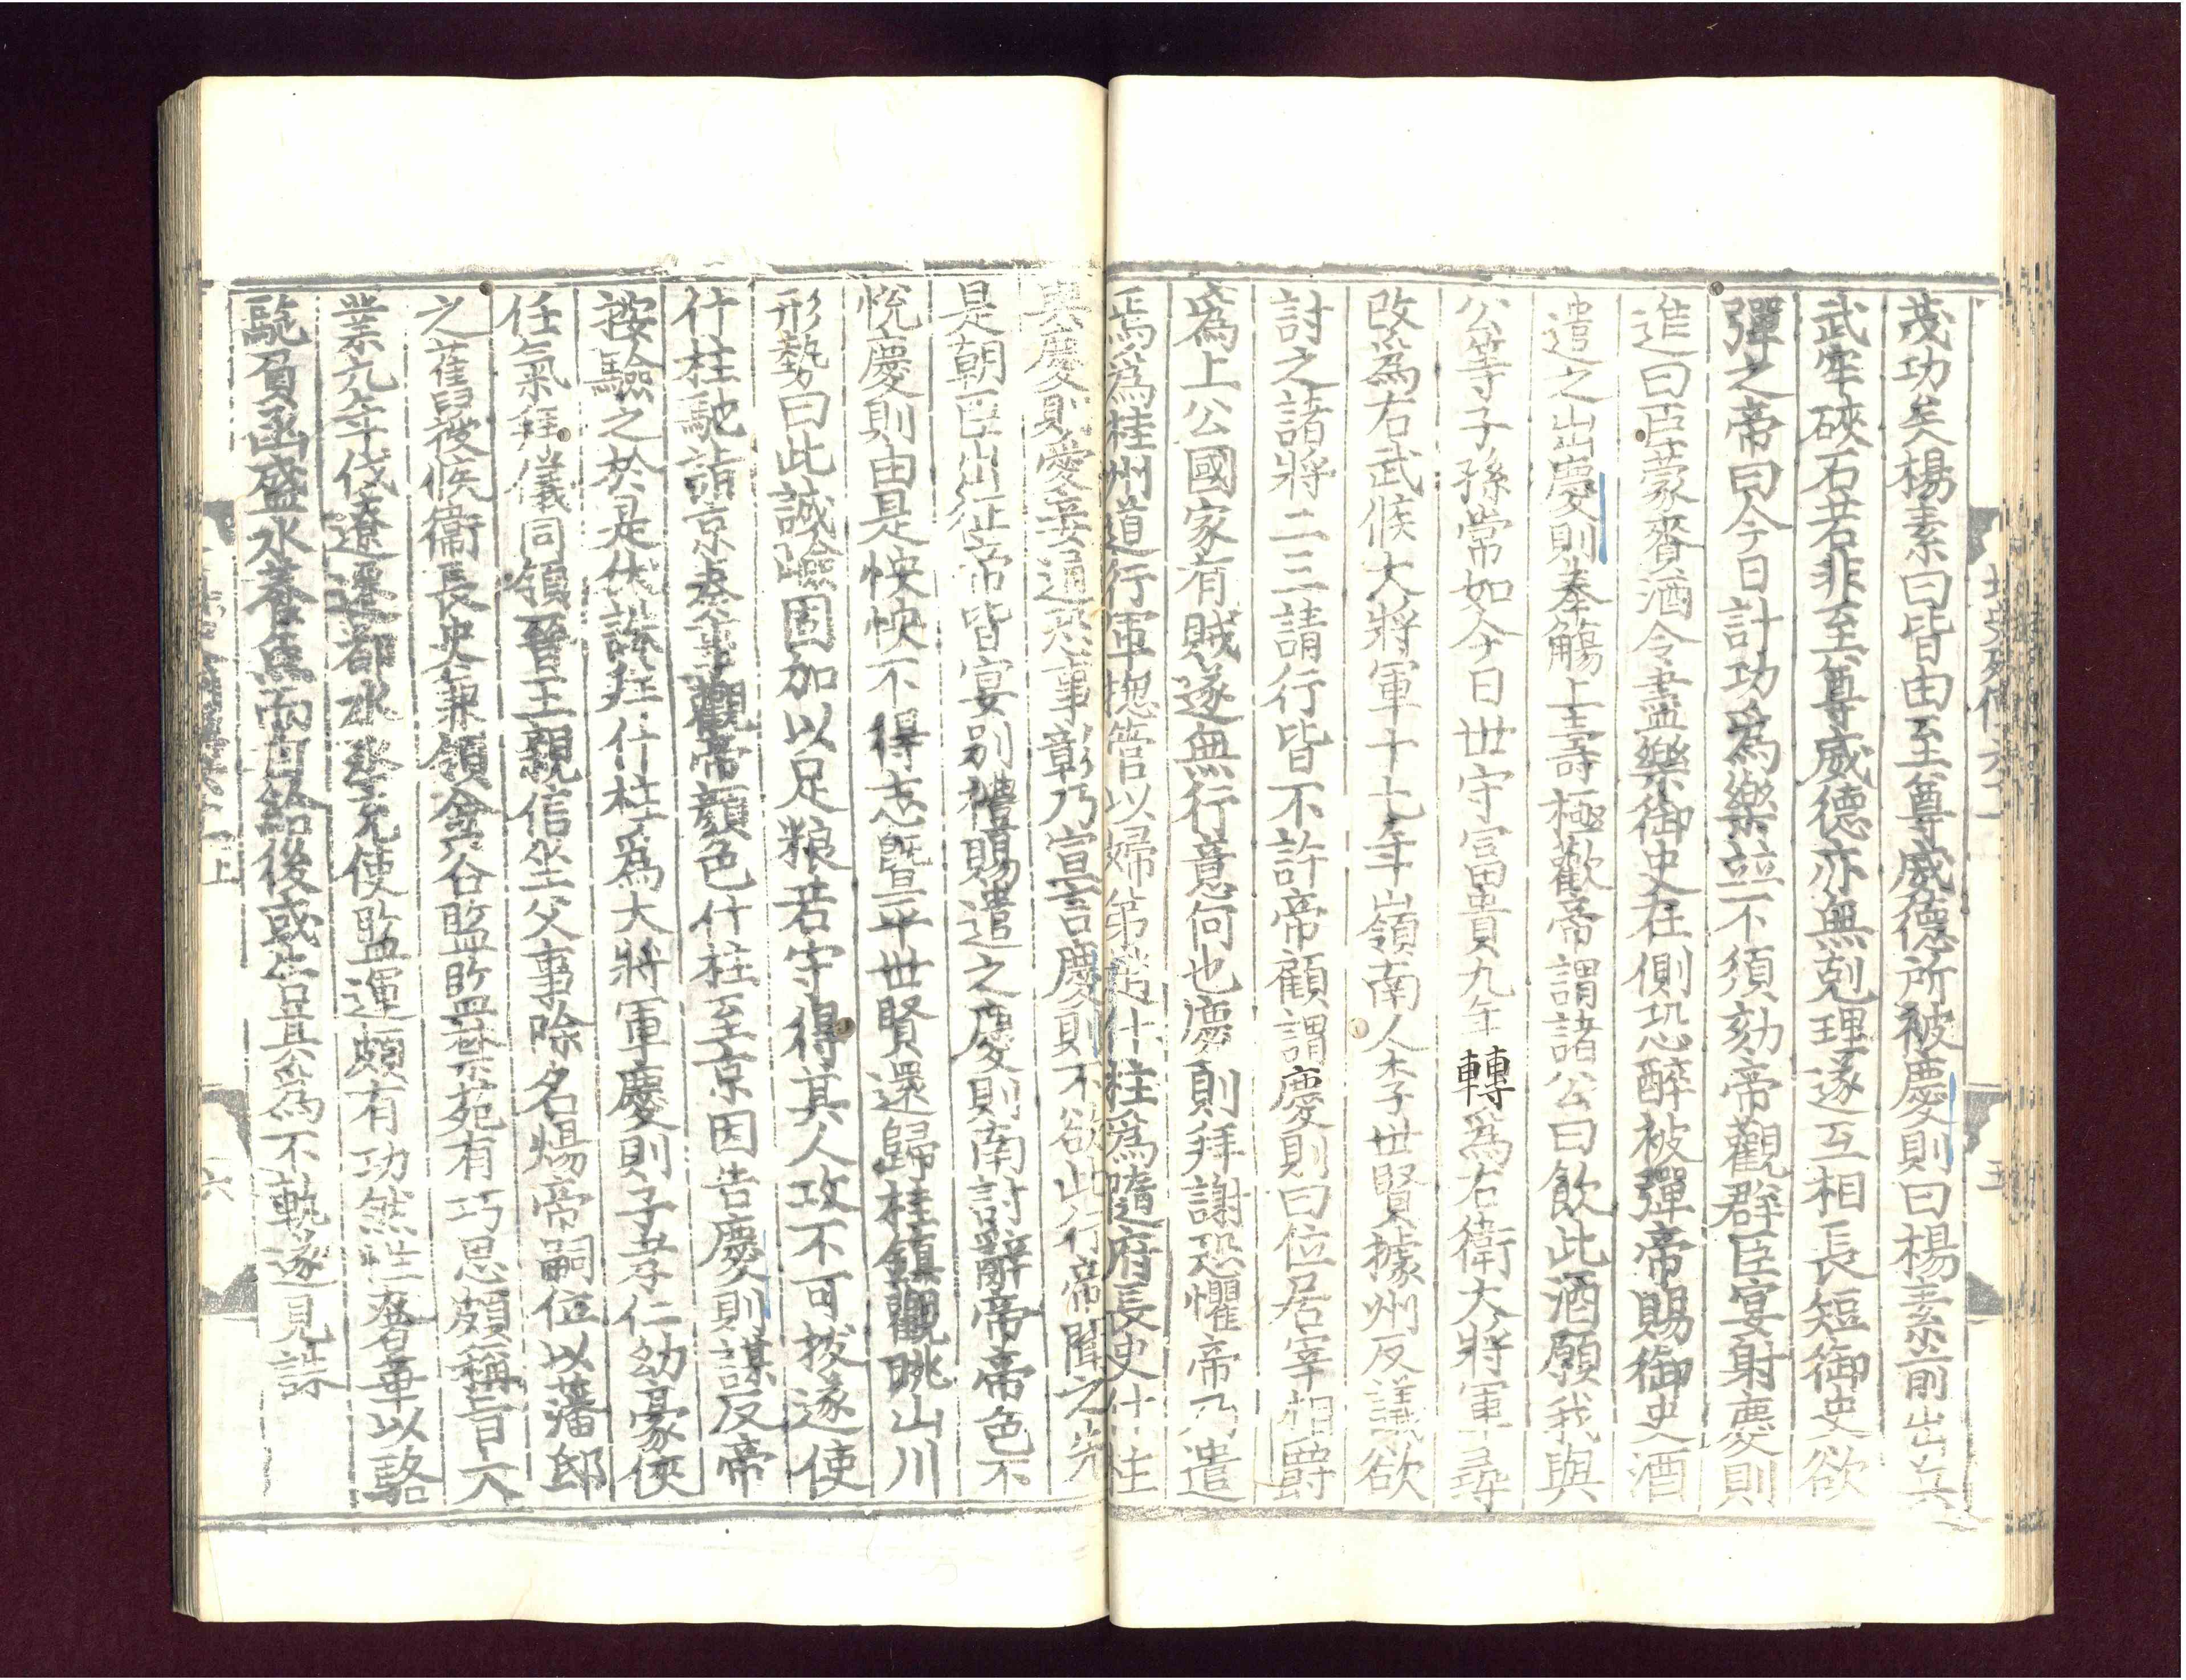 茂功矣楊素曰皆由至尊威德所被慶則曰楊素前出兵
武牢硤石若非至尊威德亦無剋理遂互相長短御史欲
彈之帝曰今日計功爲樂竝不須劾帝觀群臣宴射慶則
進曰臣蒙賚酒令盡樂御史在側恐醉被彈帝賜御史酒
遣之出慶則奉觴上壽極歡帝謂諸公曰飲此酒願我與
公等子孫常如今日世守富貴九年轉爲右衛大將軍尋
改爲右武候大將軍十七年嶺南人李世賢據州反議欲
討之諸將二三請行皆不許帝顧謂慶則曰位居宰相爵
爲上公國家有賊遂無行意何也慶則拜謝恐懼帝乃遣
焉爲桂州道行軍摠管以婦弟趙什柱爲隨府長史什柱
與慶則愛妾通恐事彰乃宣言慶則不欲此行帝聞之先
是朝臣出征帝皆宴別禮賜遣之慶則南討辭帝帝色不
悅慶則由是怏怏不得志曁平世賢還歸桂鎮觀眺山川
形勢曰此誠嶮固加以足粮若守得其人攻不可拔遂使
什柱馳詣京奏事觀帝顔色什柱至京因告慶則謀反帝
按驗之於是伏誅拜什柱爲大將軍慶則子孝仁幼豪俠
任氣拜儀同領晉王親信坐父事除名煬帝嗣位以藩邸
之舊授候衛長史兼領金谷監監禁苑有巧思頗稱旨大
業九年伐遼遷都水丞充使監運頗有功然性奢華以駱
駞負函盛水養魚而自給後或告其爲不軌遂見誅
北史列傳六十一
五
上
六